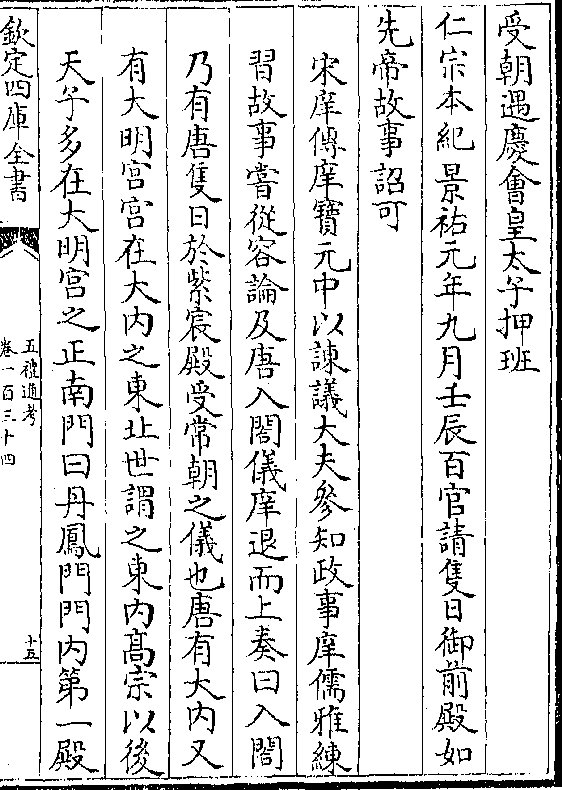 受朝遇慶會皇太子押班
仁宗本紀景祐元年九月壬辰百官請隻日御前殿如
先帝故事詔可
宋庠傳庠寶元中以諫議大夫參知政事庠儒雅練
習故事嘗從容論及唐入閤儀庠退而上奏曰入閤
乃有唐隻日於紫宸殿受常朝之儀也唐有大內又
有大明宮宮在大內之東北世謂之東內髙宗以後
天子多在大明宮之正南門曰丹鳳門門內第一殿
欽定四庫全書
五禮通考
卷一百三十四
十五